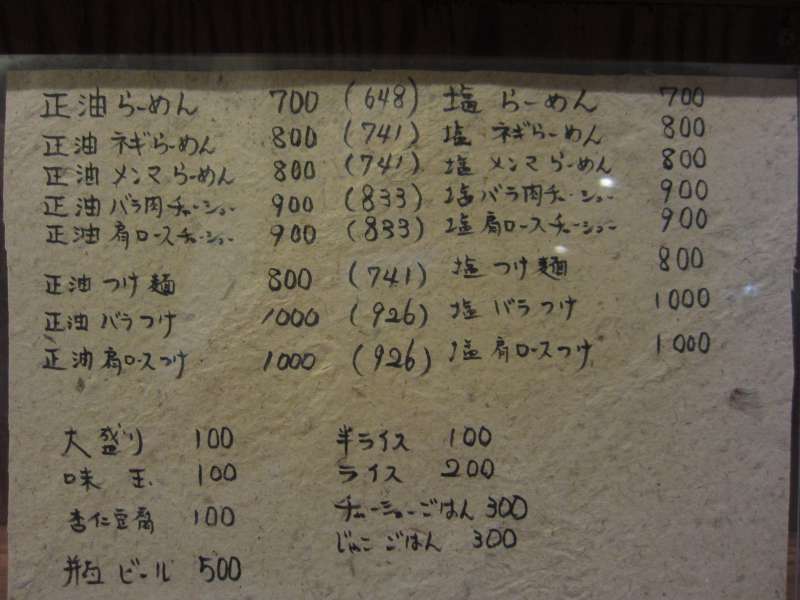 正油らーめん 700 (648) 塩らーめん 700
正油ネギらーめん 800 (741) 塩ネギらーめん 800
正油メンマらーめん 800 (741) 塩メンマらーめん 800
正油バラ肉チャーシュー 900 (833) 塩バラ肉チャーシュー 900
正油肩ロースチャーシュー 900 (833) 塩肩ロースチャーシュー 900
正油つけ麺 800 (741) 塩つけ麺 800
正油バラつけ 1000 (926) 塩バラつけ 1000
正油肩ロースつけ 1000 (926) 塩肩ロースつけ 1000
大盛り 100 半ライス 100
味玉 100 ライス 200
杏仁豆腐 100 チャーシューごはん 300
じゃこごはん 300
瓶ビール 500